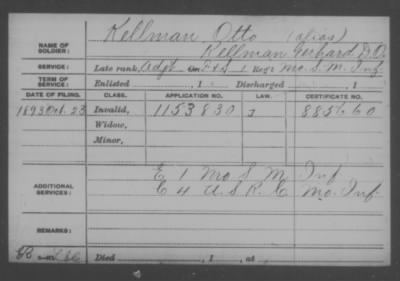 Kellman, Otto (alias)
NAME OF SOLDIER: Kellman, Gerhard D. O.
SERVICE: Late rank, Adgt F & S 1 Reg't Mo. S. M. Inf
TERM OF SERVICE: Enlisted , 1 Discharged , 1
DATE OF FILING. CLASS. APPLICATION NO. LAW. CERTIFICATE NO.
1893 Oct. 23 Invalid, 1153830 885660
Widow,
Minor,
E 1 Mo S M Inf
ADDITIONAL SERVICES: E 4 U. S. R. C. Mo. Inf.
REMARKS:
Died , 1 , at